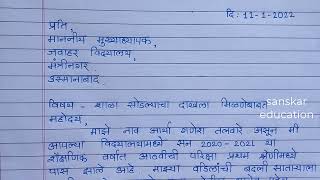 दि : 11-1-2022
प्रति,
माननीय मुख्याध्यापक,
जवाहर विद्यालय,
मंत्रीनगर
उस्मानाबाद
विषय - शाळा सोडल्याचा दाखला मिळणेबाबत
sanskar
education
महोदय,
माझे नाव आर्या गणेश तलवारे असून मी
आपल्या विद्यालयामध्ये सन 2020-2021 या
शैक्षणिक वर्षात आठवीची परिक्षा प्रथम श्रेणीमध्ये
पास झाले आहे माझ्या वडिलांची बदली साताऱ्याला